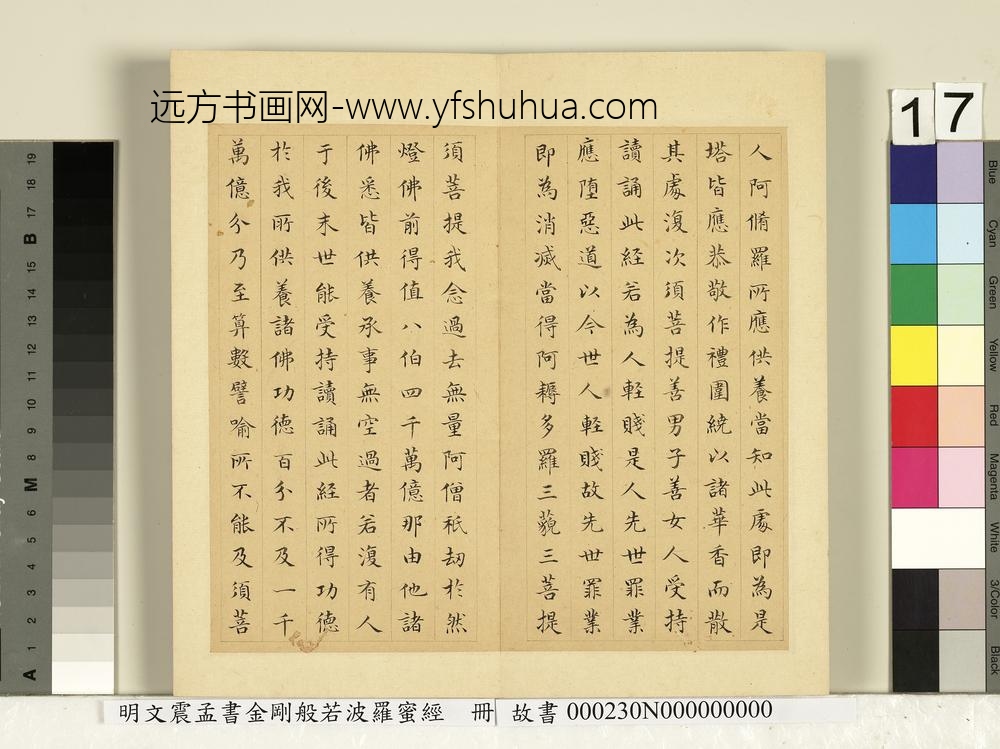 远方书画网-www.yfshuhua.com
人阿脩羅所應供養當知此處即為是
塔皆應恭敬作禮圍繞以諸華香而散
其處復次須菩提善男子善女人受持
讀誦此經若為人輕賤是人先世罪業
應墮惡道以今世人輕賤故先世罪業
即為消滅當得阿耨多羅三藐三菩提
須菩提我念過去無量阿僧祇劫於然
燈佛前得值八伯四千萬億那由他諸
佛悉皆供養承事無空過者若復有人
于後末世能受持讀誦此經所得功德
於我所供養諸佛功德百分不及一千
萬億分乃至算數譬喻所不能及須菩
17
Blue
Cyan
Green
Yellow
Red
Magenta
White
3/Color
Black
19
18
17
B
15
14
13
12
11
10
9
8
M
6
5
4
3
2
1
A
明文震孟書金剛般若波羅蜜經 冊 故書 000230N000000000